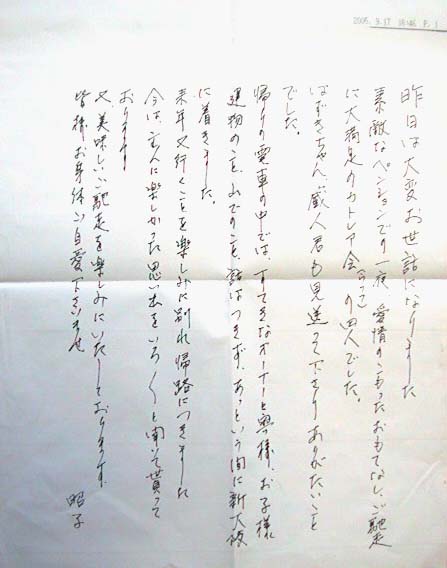 2005. 9.17 P. 1
昨日は大変お世話になりました
素敵なペンションでの一夜、愛情のこもったおもてなし、ご馳走
に大満足のカトレア会の四人でした。
はずきちゃん、蔵人君も見送って下さりありがたいこと
でした。
帰りの電車の中では、すてきなオーナーと奥様、お子様
建物のこと、山でのこと、話はつきず、あっという間に新大阪
に着きました。
来年又行くことを楽しみに別れ帰路につきました
今は、主人に楽しかった思い出をいろ〱と聞いて貰って
おります
又、美味しいご馳走を楽しみにいたしております。
皆様、お身体ご自愛下さいませ
昭子